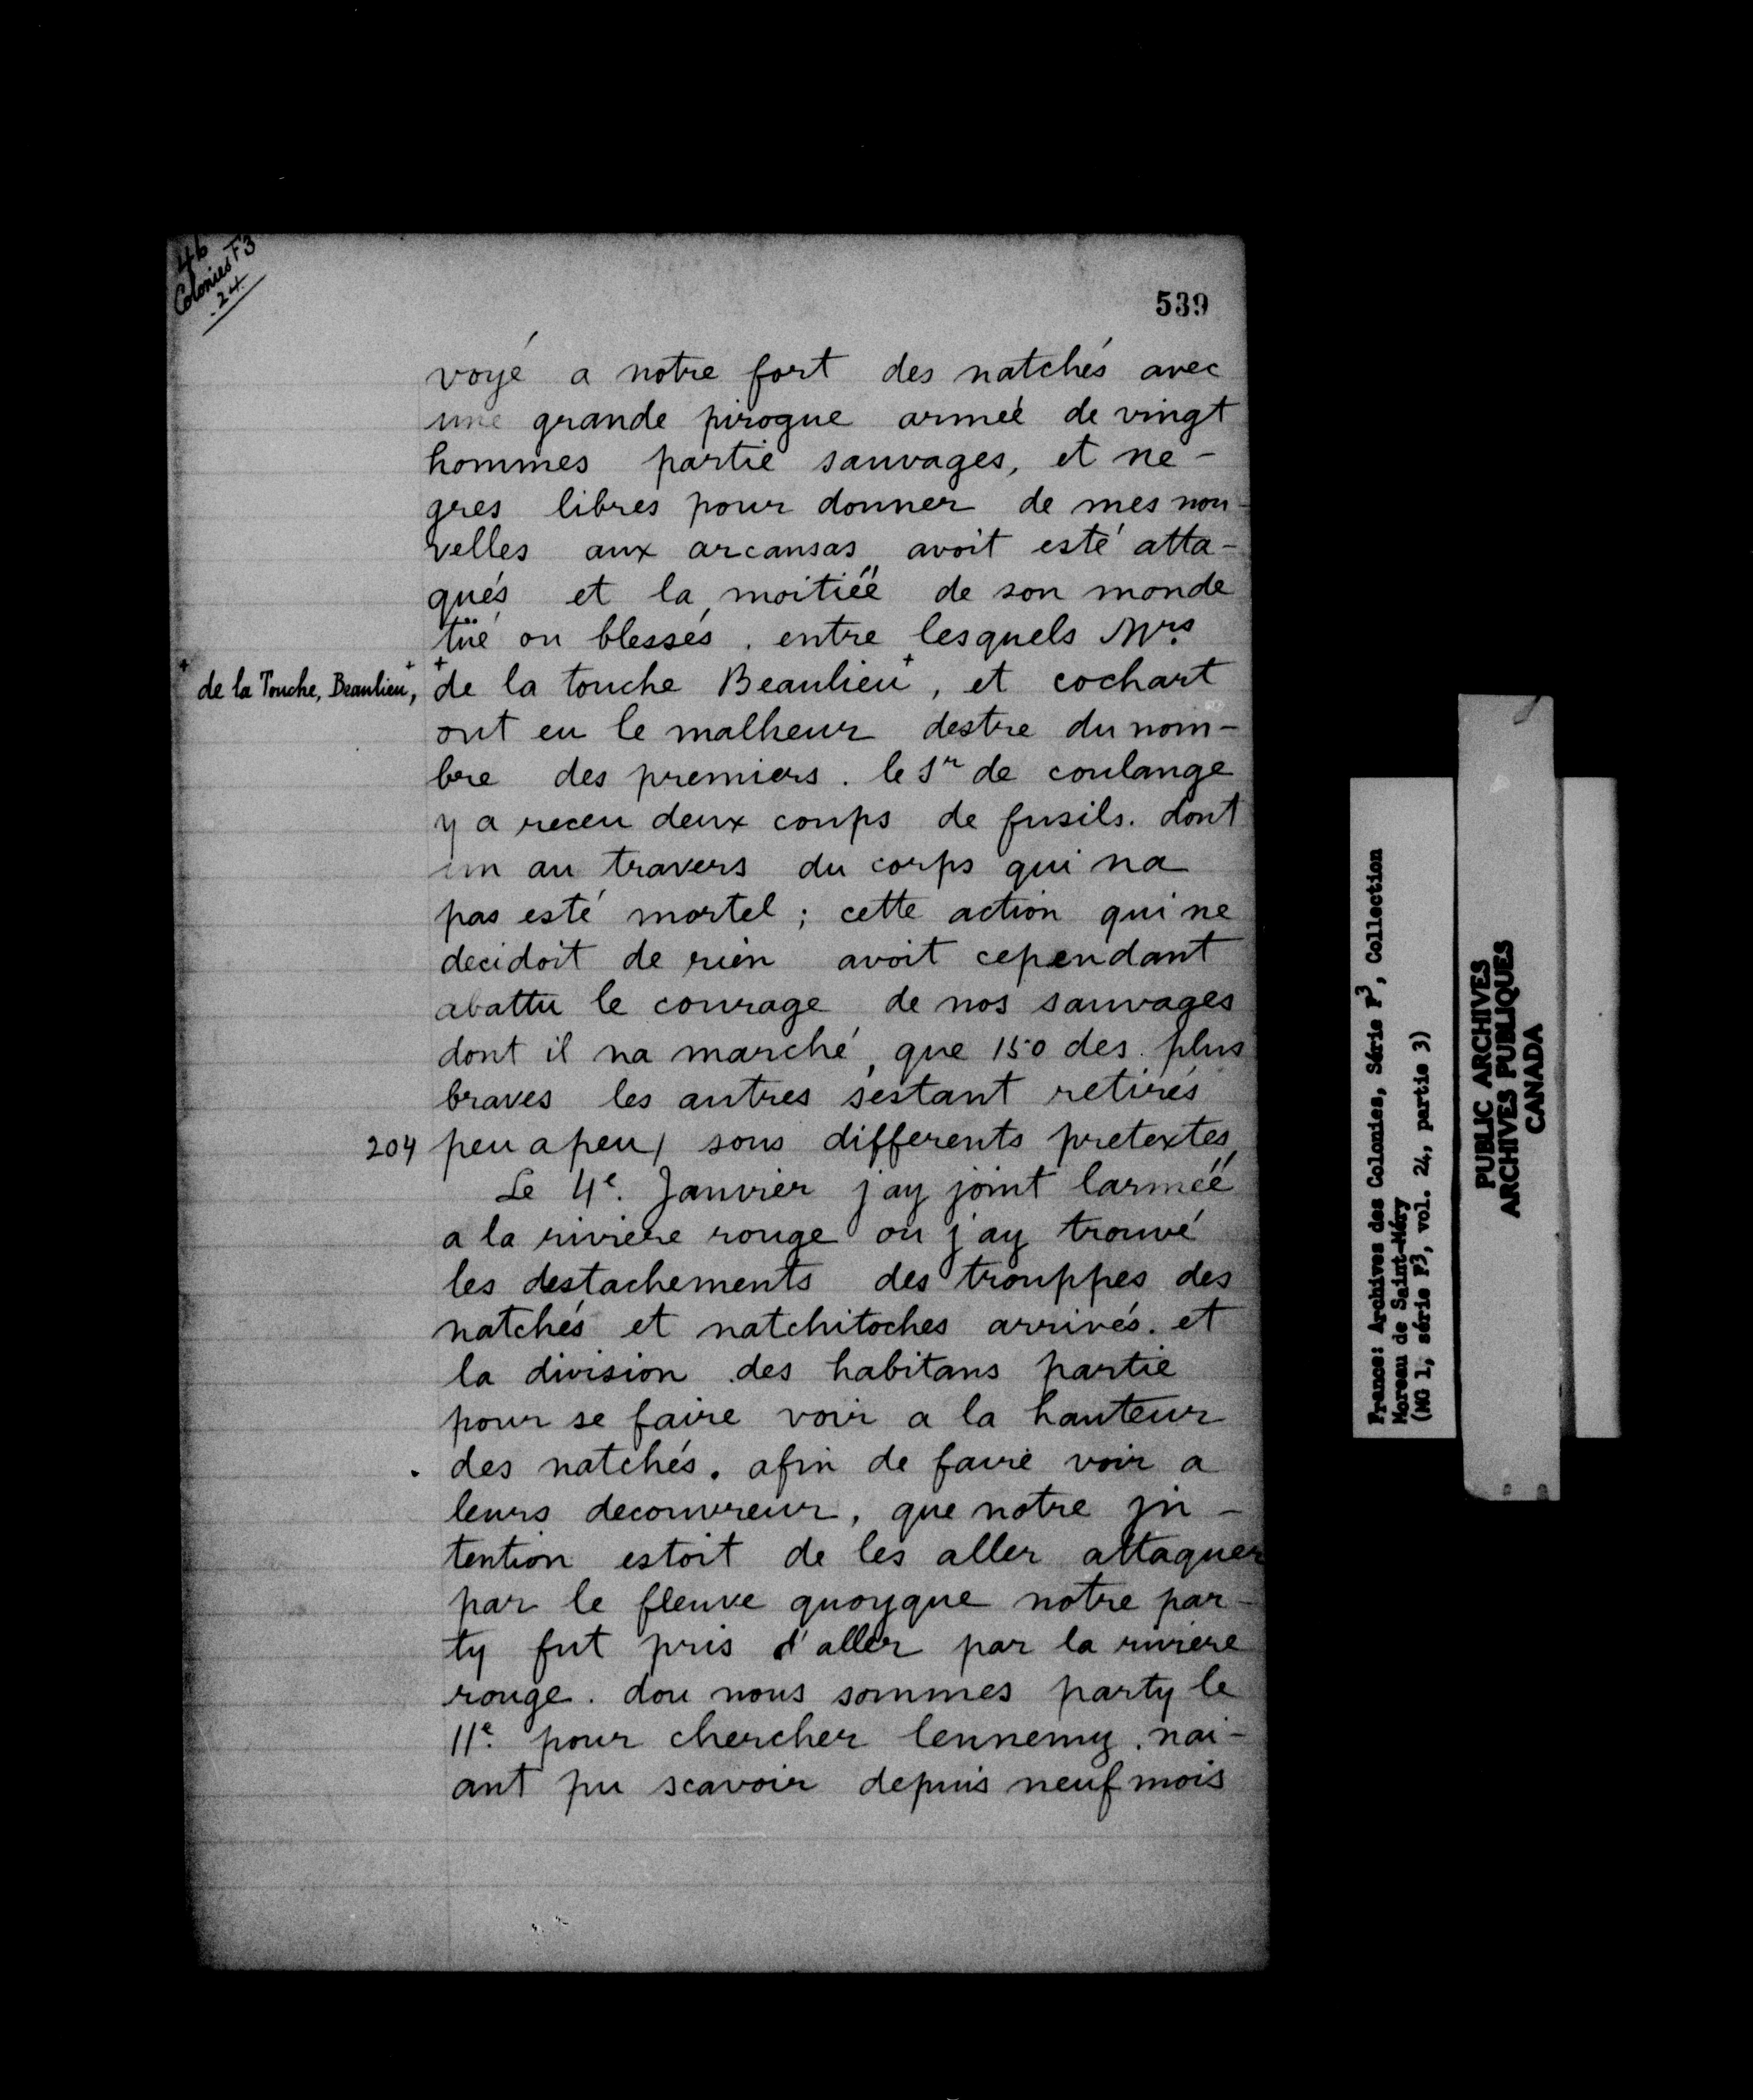 46
Colonies F3
24
539
voyé a notre fort des natchés avec
une grande pirogue armeé de vingt
hommes partie sauvages, et ne-
gres libres pour donner de mes nou-
velles aux arcansas avoit esté atta-
qués et la moitiéé de son monde
tüé ou blessés. entre lesquels Mrs
+ de la Touche, Beaulieu, +
+ de la touche Beaulieu +, et cochart
ont eu le malheur destre du nom-
bre des premiers. le Sr de coulange
y a receu deux coups de fusils. dont
un au travers du corps qui na
pas esté mortel; cette action qui ne
decidoit de rien avoit cependant
abattu le courage de nos sauvages
dont il na marché, que 150 des plus
braves les autres sestant retirés
204 peu a peu/ sous differents pretextes,
Le 4e. Janvier j'ay joint larméé
a la riviere rouge ou j'ay trouvé
les destachements des trouppes des
natchés et natchitoches arrivés. et
la division des habitans partie
pour se faire voir a la hauteur
des natchés. afin de faire voir a
leurs decouvreur, que notre jn-
tention estoit de les aller attaquer
par le fleuve quoyque notre par-
ty fut pris d'aller par la riviere
rouge. dou nous sommes party le
11e. pour chercher lennemy. nai-
ant pu scavoir depuis neuf mois
France: Archives des Colonies, Série F3, Collection
Moreau de Saint-Méry
(MG 1, série F3, vol. 24, partie 3)
PUBLIC ARCHIVES
ARCHIVES PUBLIQUES
CANADA